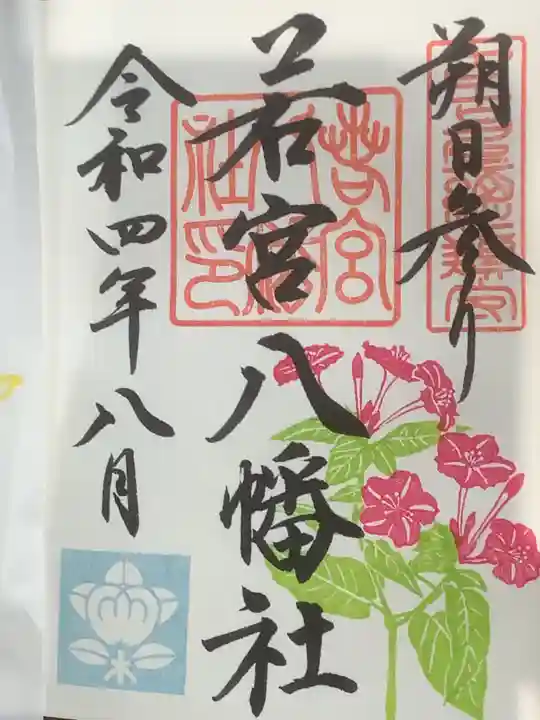 朔日参り
若宮八幡社
令和四年八月
若宮八幡社印